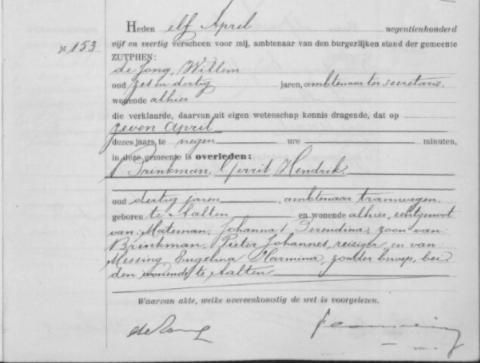 Heden elf April negentienhonderd
№ 153
vijf en veertig verscheen voor mij, ambtenaar van den burgerlijken stand der gemeente
ZUTPHEN:
de Jong, Willem
oud zes en dertig jaren, ambtenaar ter secretarie
wonende alhier
die verklaarde, daarvan uit eigen wetenschap kennis dragende, dat op
zeven April
dezes jaars te negen ure minuten,
in deze gemeente is overleden:
Brinkman, Gerrit Hendrik
oud dertig jaren, ambtenaar tramwegen
geboren te Aalten en wonende alhier, echtgenoot
van Mateman, Johanna Berendina; zoon van
Brinkman, Pieter Johannes, reiziger en van
Messing, Engelina Harmina, zonder beroep, bei
den wonende te Aalten
Waarvan akte, welke overeenkomstig de wet is voorgelezen.
de Jong